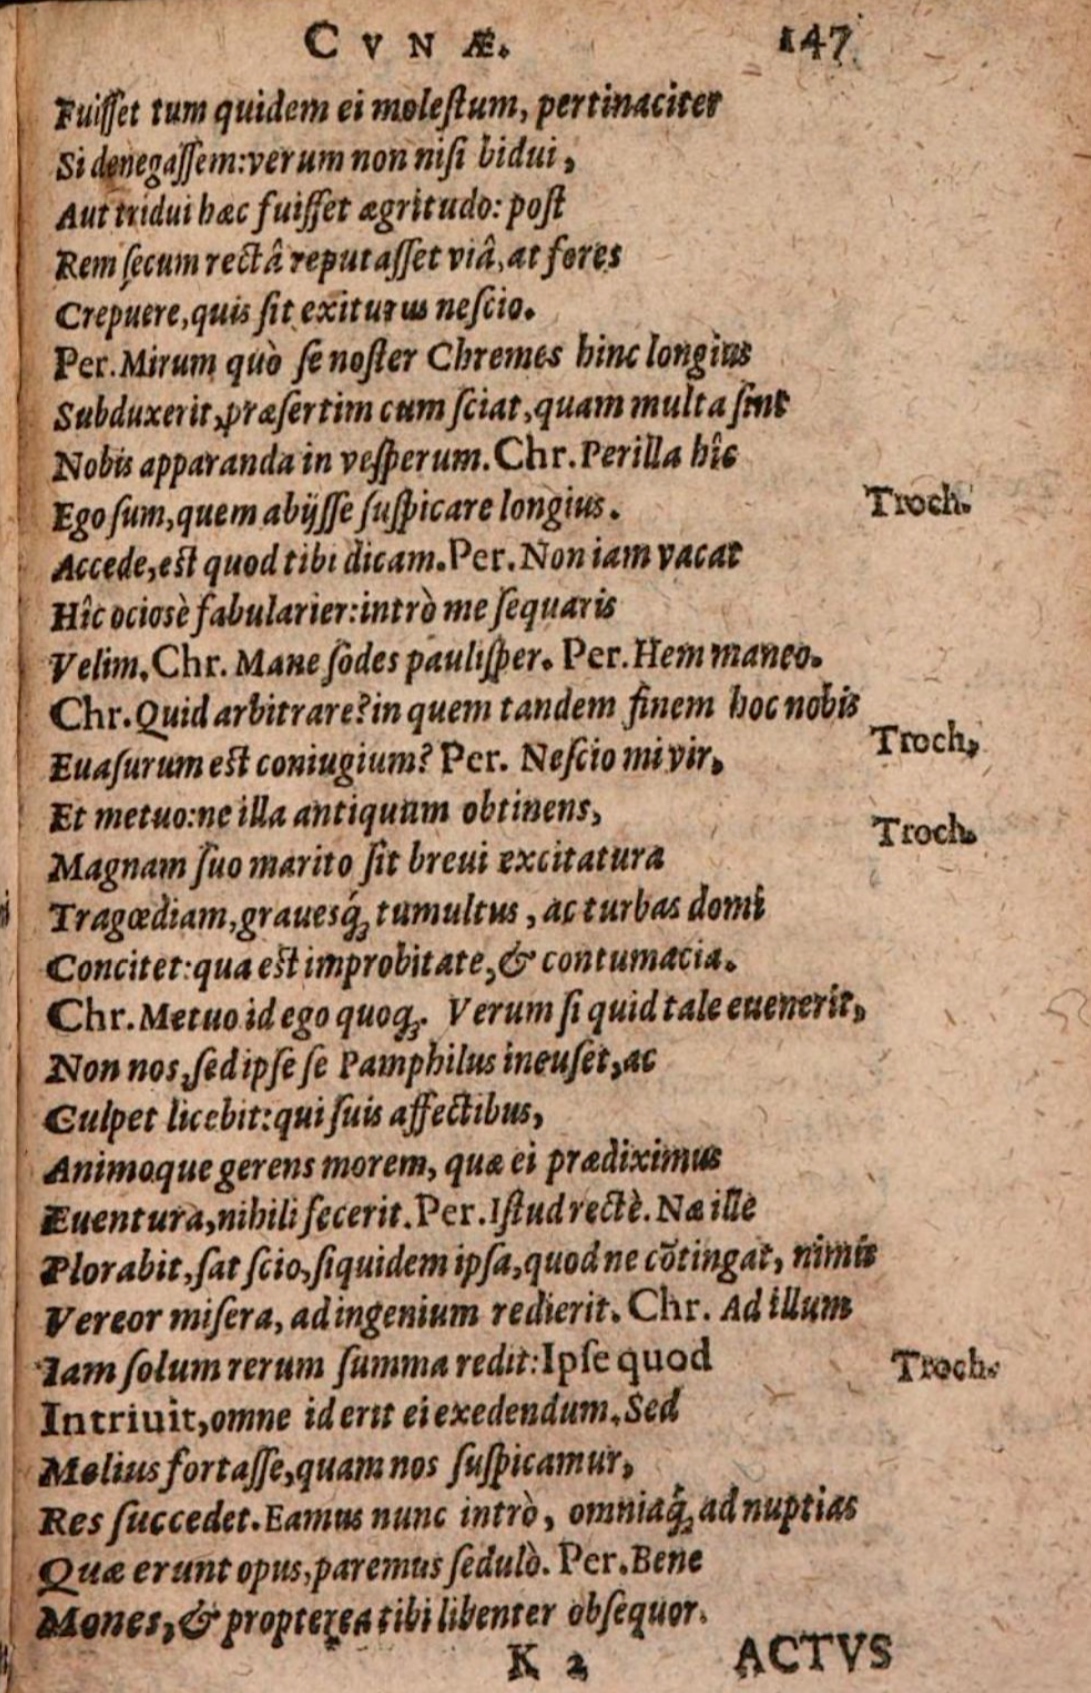 CVNÆ. 147
Fuiſſet tum quidem ei moleſtum, pertinaciter
Si denegaſſem:verum non niſi bidui,
Aut tridui hæc fuiſſet ægritudo: poſt
Rem ſecum rectâ reputaſſet viâ, at fores
Crepuere,quis ſit exiturus neſcio.
Per. Mirum quò ſe noſter Chremes hinc longius
Subduxerit,præſertim cum ſciat,quam multa ſint
Nobis apparanda in veſperum. Chr. Perilla hîc
Ego ſum,quem abijſſe ſuſpicare longius. Troch.
Accede,est quod tibi dicam. Per. Non iam vacat
Hîc ociosè fabularier:intrò me ſequaris
Velim. Chr. Mane ſodes pauliſper. Per. Hem maneo.
Chr. Quid arbitrare? in quem tandem finem hoc nobis
Euaſurum est coniugium? Per. Neſcio mi vir, Troch,
Et metuo:ne illa antiquum obtinens,
Magnam ſuo marito ſit breui excitatura Troch.
Tragœdiam,graueſq́; tumultus, ac turbas domi
Concitet:qua est improbitate,& contumacia.
Chr. Metuo id ego quoq;. Verum ſi quid tale euenerit,
Non nos,ſed ipſe ſe Pamphilus incuſet,ac
Culpet licebit:qui ſuis affectibus,
Animoque gerens morem, quæ ei prædiximus
Euentura,nihili fecerit. Per. Iſtud rectè. Næ ille
Plorabit,ſat ſcio,ſiquidem ipſa,quod ne cõtingat, nimis
Vereor miſera, ad ingenium redierit. Chr. Ad illum
Iam ſolum rerum ſumma redit:Ipſe quod Troch.
Intriuit,omne id erit ei exedendum. Sed
Melius fortaſſe,quam nos ſuſpicamur,
Res ſuccedet. Eamus nunc intrò, omniaq́; ad nuptias
Quæ erunt opus,paremus ſedulò. Per. Bene
Mones,& propterea tibi libenter obſequor.
K 2 ACTVS